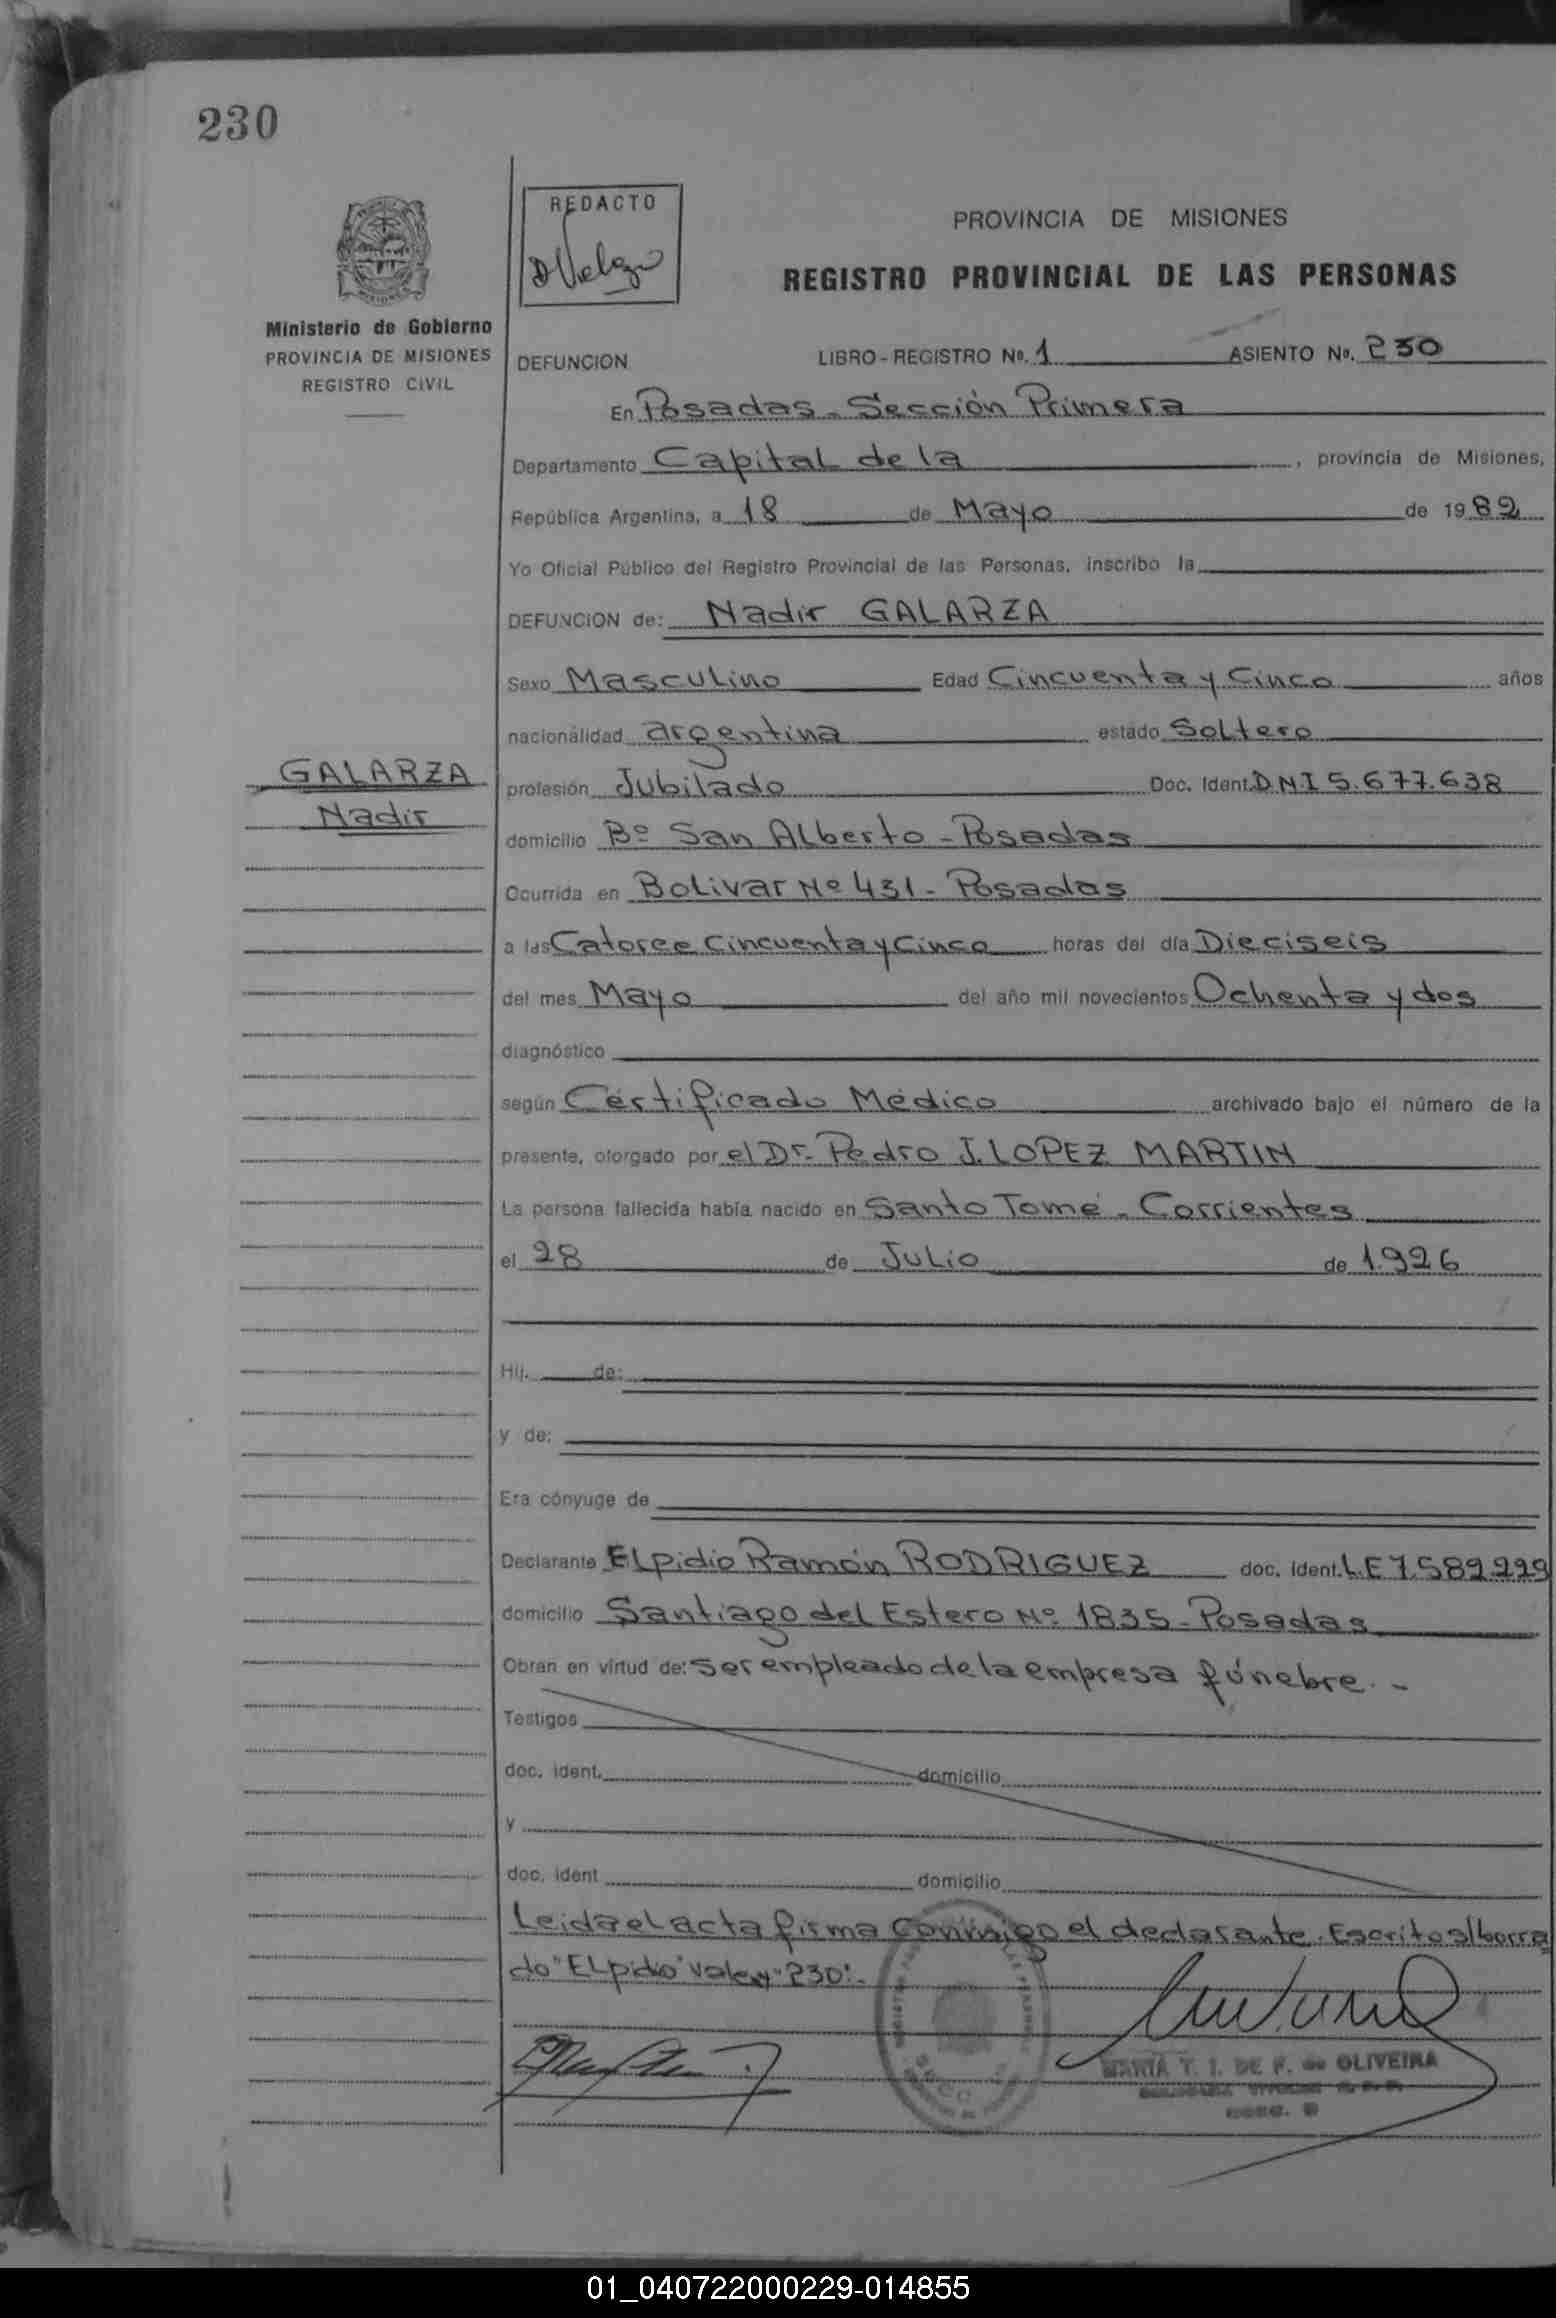 230
REDACTO
D Velazo
Ministerio de Gobierno
PROVINCIA DE MISIONES
REGISTRO CIVIL
PROVINCIA DE MISIONES
REGISTRO PROVINCIAL DE LAS PERSONAS
DEFUNCION LIBRO-REGISTRO Nº. 1 ASIENTO Nº. 230
En Posadas - Sección Primera
Departamento Capital de la , provincia de Misiones,
República Argentina, a 18 de Mayo de 1982
Yo Oficial Público del Registro Provincial de las Personas, inscribo la
DEFUNCION de: Nadir GALARZA
Sexo Masculino Edad Cincuenta y Cinco años
nacionálidad argentina estado Soltero
GALARZA
Nadir
profesión Jubilado Doc. Ident. DNI 5.677.638
domicilio Bº San Alberto - Posadas
Ocurrida en Bolivar Nº 431 - Posadas
a las Catorce Cincuenta y Cinco horas del día Dieciseis
del mes Mayo del año mil novecientos Ochenta y dos
diagnóstico
según Certificado Médico archivado bajo el número de la
presente, otorgado por el Dr. Pedro J. LOPEZ MARTIN
La persona fallecida había nacido en Santo Tomé - Corrientes
el 28 de Julio de 1.926
Hij. de:
y de:
Era cónyuge de
Declarante Elpidio Ramón RODRIGUEZ doc. ident. L.E 7.589.229
domicilio Santiago del Estero Nº 1835 - Posadas
Obran en virtud de: Ser empleado de la empresa fúnebre. -
Testigos
doc. ident. domicilio
y
doc. ident domicilio
Leida el acta firma conmigo el declarante. Escrito s/borra
do "Elpidio" vale y "230". -
MARIA T. I. DE F. de OLIVEIRA
01_040722000229-014855